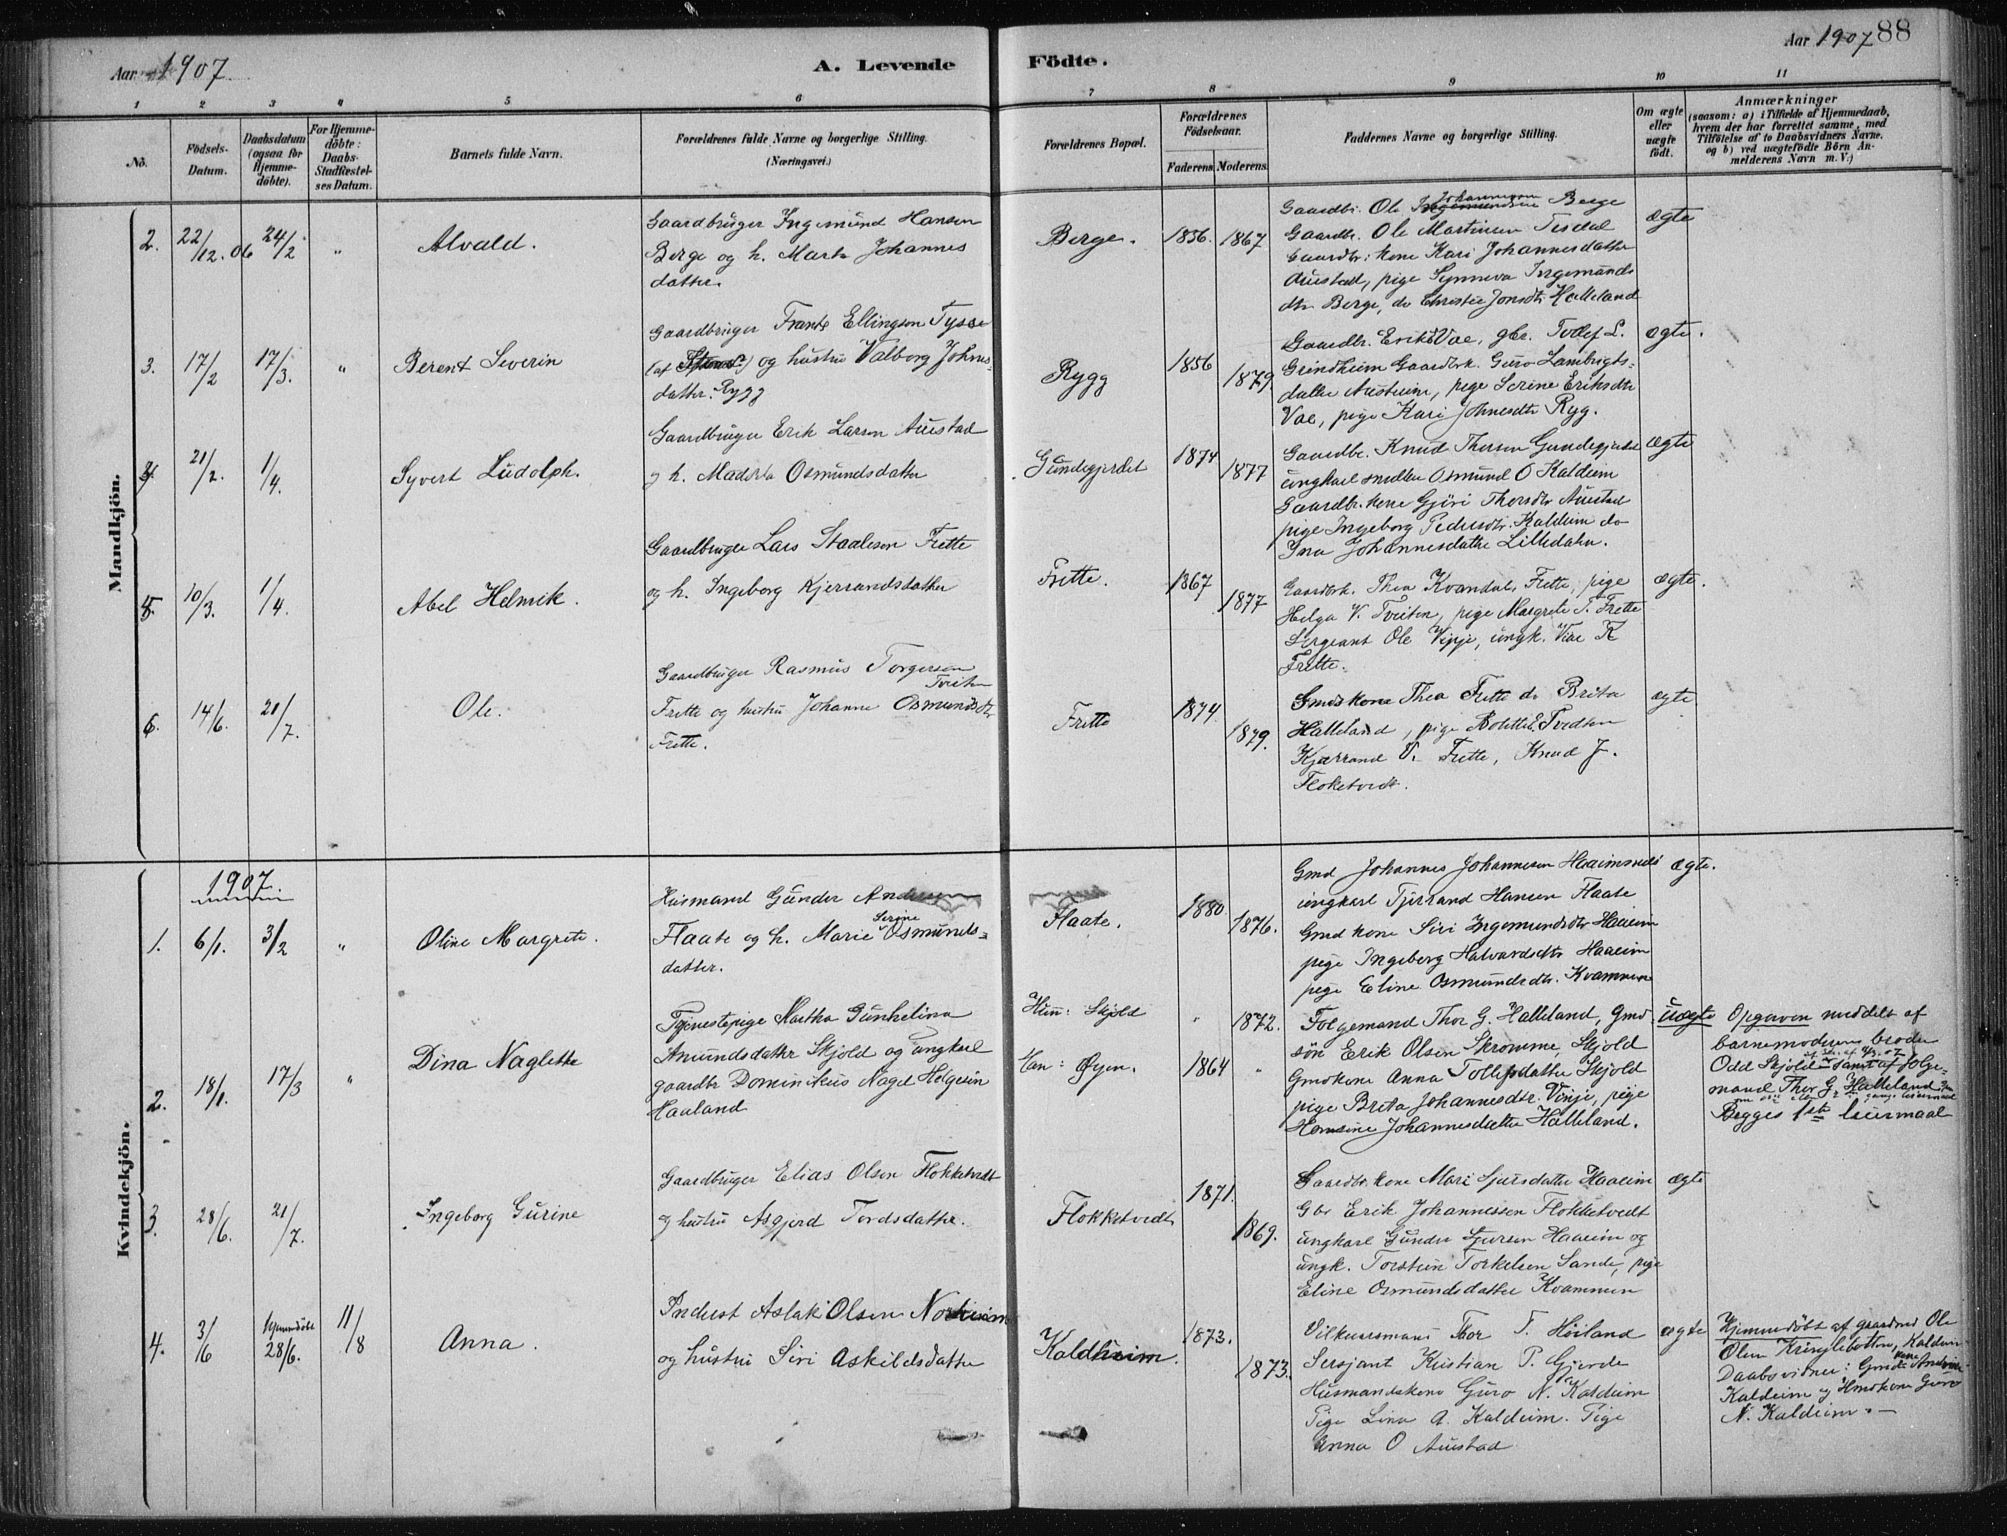 Aar 1907.
A. Levende
Födte.
Aar 1907
88
1
2
3
4
5
6
7
8
9
10
11
No.
Födsels-
Datum.
Daabsdatum
(ogsaa for
Hjemme-
döbte).
For Hjemme-
döbte:
Daabs-
Stadfæstel-
ses Datum.
Barnets fulde Navn.
Forældrenes fulde Navne og borgerlige Stilling.
(Næringsvei.)
Forældrenes Bopæl.
Forældrenes
Födselsaar.
Faderens
Moderens.
Faddernes Navne og borgerlige Stilling.
Om ægte
eller
uægte
födt.
Anmærkninger
(saasom: a) i Tilfælde af Hjemmedaab,
hvem der har forrettet samme, med
Tilföielse af to Daabsvidners Navne,
og b) ved uægtefödte Börn An-
melderens Navn m. V.)
Mandkjön.
2. 22/12. 06 24/2 " Alvald.
Gaardbruger Ingemund Hansen
Berge og h. Marta Johannes
datter.
Berge. 1856. 1867
Gaardbr. Ole Johannesen Berge
Gaardbr. Ole Martinsen Tisdal
Gaardbr: kone Kari Johannesdatter
Austad, pige Synneva Ingemunds
dtr Berge, do Christie Jonsdtr Halleland
ægte
3. 17/2 17/3. " Berent Severin
Gaardbruger Frants Ellingson Tysse
og hustru Valborg Johnes-
datter Rygg
Rygg 1856 1879
Gaardbr. Erik Vae, gbr. Tollef L.
Grindheim Gaardbrk. Guro Lambrigts-
datter Austheim, pige Serine Eriksdtr
Vae, pige Kari Johnesdtr Ryg.
ægte.
4 21/2. 1/4. Syvert Ludolph.
Gaardbruger Erik Larsen Austad
og h. Madsta Osmundsdatter
Gundegjerdet 1874 1877
Gaardbr. Knud Thorsen Gundegjerdet
ungkarl snedker Osmund O Kaldeim
Gaardbr. kone Gjöri Thorsdtr Austad
pige Ingeborg Pedersdtr. Kaldeim do
Ina Johannesdatter Lilledahn.
ægte
5. 10/3. 1/4. Abel Helmik.
Gaardbruger Lars Staaleson Frette
og h. Ingeborg Kjerrandsdatter
Frette. 1867 1877
Gaardbrk. Thea Kvandal, Frette, pige
Helga V. Tveiten, pige Margrete T. Frette
Sergeant Ole Vinje, ungk. Viae K
Frette.
ægte.
6. 14/6. 21/7. Ole.
Gaardbruger Rasmus Torgersen
Tveiten
Frette og hustru Johanne Osmundsdtr
Frette.
Frette 1874 1879.
Gmdskone Thea Frette do Brita
Halleland, pige Bolette E Tvedten
Kjærrand V. Frette, Knud J.
Floketvedt.
ægte
Kvindekjön.
1907.
1. 6/1. 3/2 " Oline Margrete.
Husmand Gunder
Flaate og h. Marie Serine Osmunds-
datter.
Flaate. 1880 1876.
Gmd Johannes Johannesen Haaimsnes
ungkarl Tjerrand Hansen Flaate
Gmd kone Siri Ingemundsdtr Haaeim
pige Ingeborg Halvardsdtr Haaeim
pige Eline Osmundsdtr. Kvammen
ægte.
2. 18/1. 17/3 " Dina Naglette
Tjenestepige Martha Gunhelina
Amundsdatter Skjold og ungkarl
gaardbr Dominikus Nagel Helgesen
Haaland
Hun: Skjold " 1872.
Han: Øyen. 1864 "
Folgemand Thor G. Halleland, Gmd
sön Erik Olsen Skromme, Skjold
Gmdkone Anna Tollefsdatter Skjold
pige Brita Johannesdtr. Vinje, pige
Hansine Johannesdatter Halleland.
uægte
Opgaven meddelt af
barnemoderens broder
Odd Skjold samt af folge-
mand Thor G. Halleland
Begges 1ste leiermaal
3. 28/6. 21/7. Ingeborg Gurine
Gaardbruger Elias Olsen Flokketvedt
og hustru Asgjerd Tordsdatter.
Flokketvedt 1871. 1869.
Gaardbr. kone Mari Sjursdatter Haaeim
Gbr Erik Johannessen Flokketvedt
ungkarl Gunder Sjursen Haaeim og
ungk. Torstein Torkelsen Sande, pige
Eline Osmundsdatter Kvammen
ægte
4. 3/6 hjemmdöbt 28/6. 11/8 Anna.
Inderst Aslak Olsen Norheim
og hustru Siri Askildsdatter
Kaldheim. 1873. 1873.
Vilkaarsmand Thor T. Höiland
Sersjant Kristian P. Gjerde
Husmandskone Guro N. Kaldeim
Pige Lina A. Kaldeim. Pige
Anna O Austad
ægte
Hjemmedöbt af graardmd Ole
Olsen Kringlebotten, Kaldeim
Daabsvidner: Gmds kone
Kaldeim og Hmdkone Guro
N. Kaldeim. —